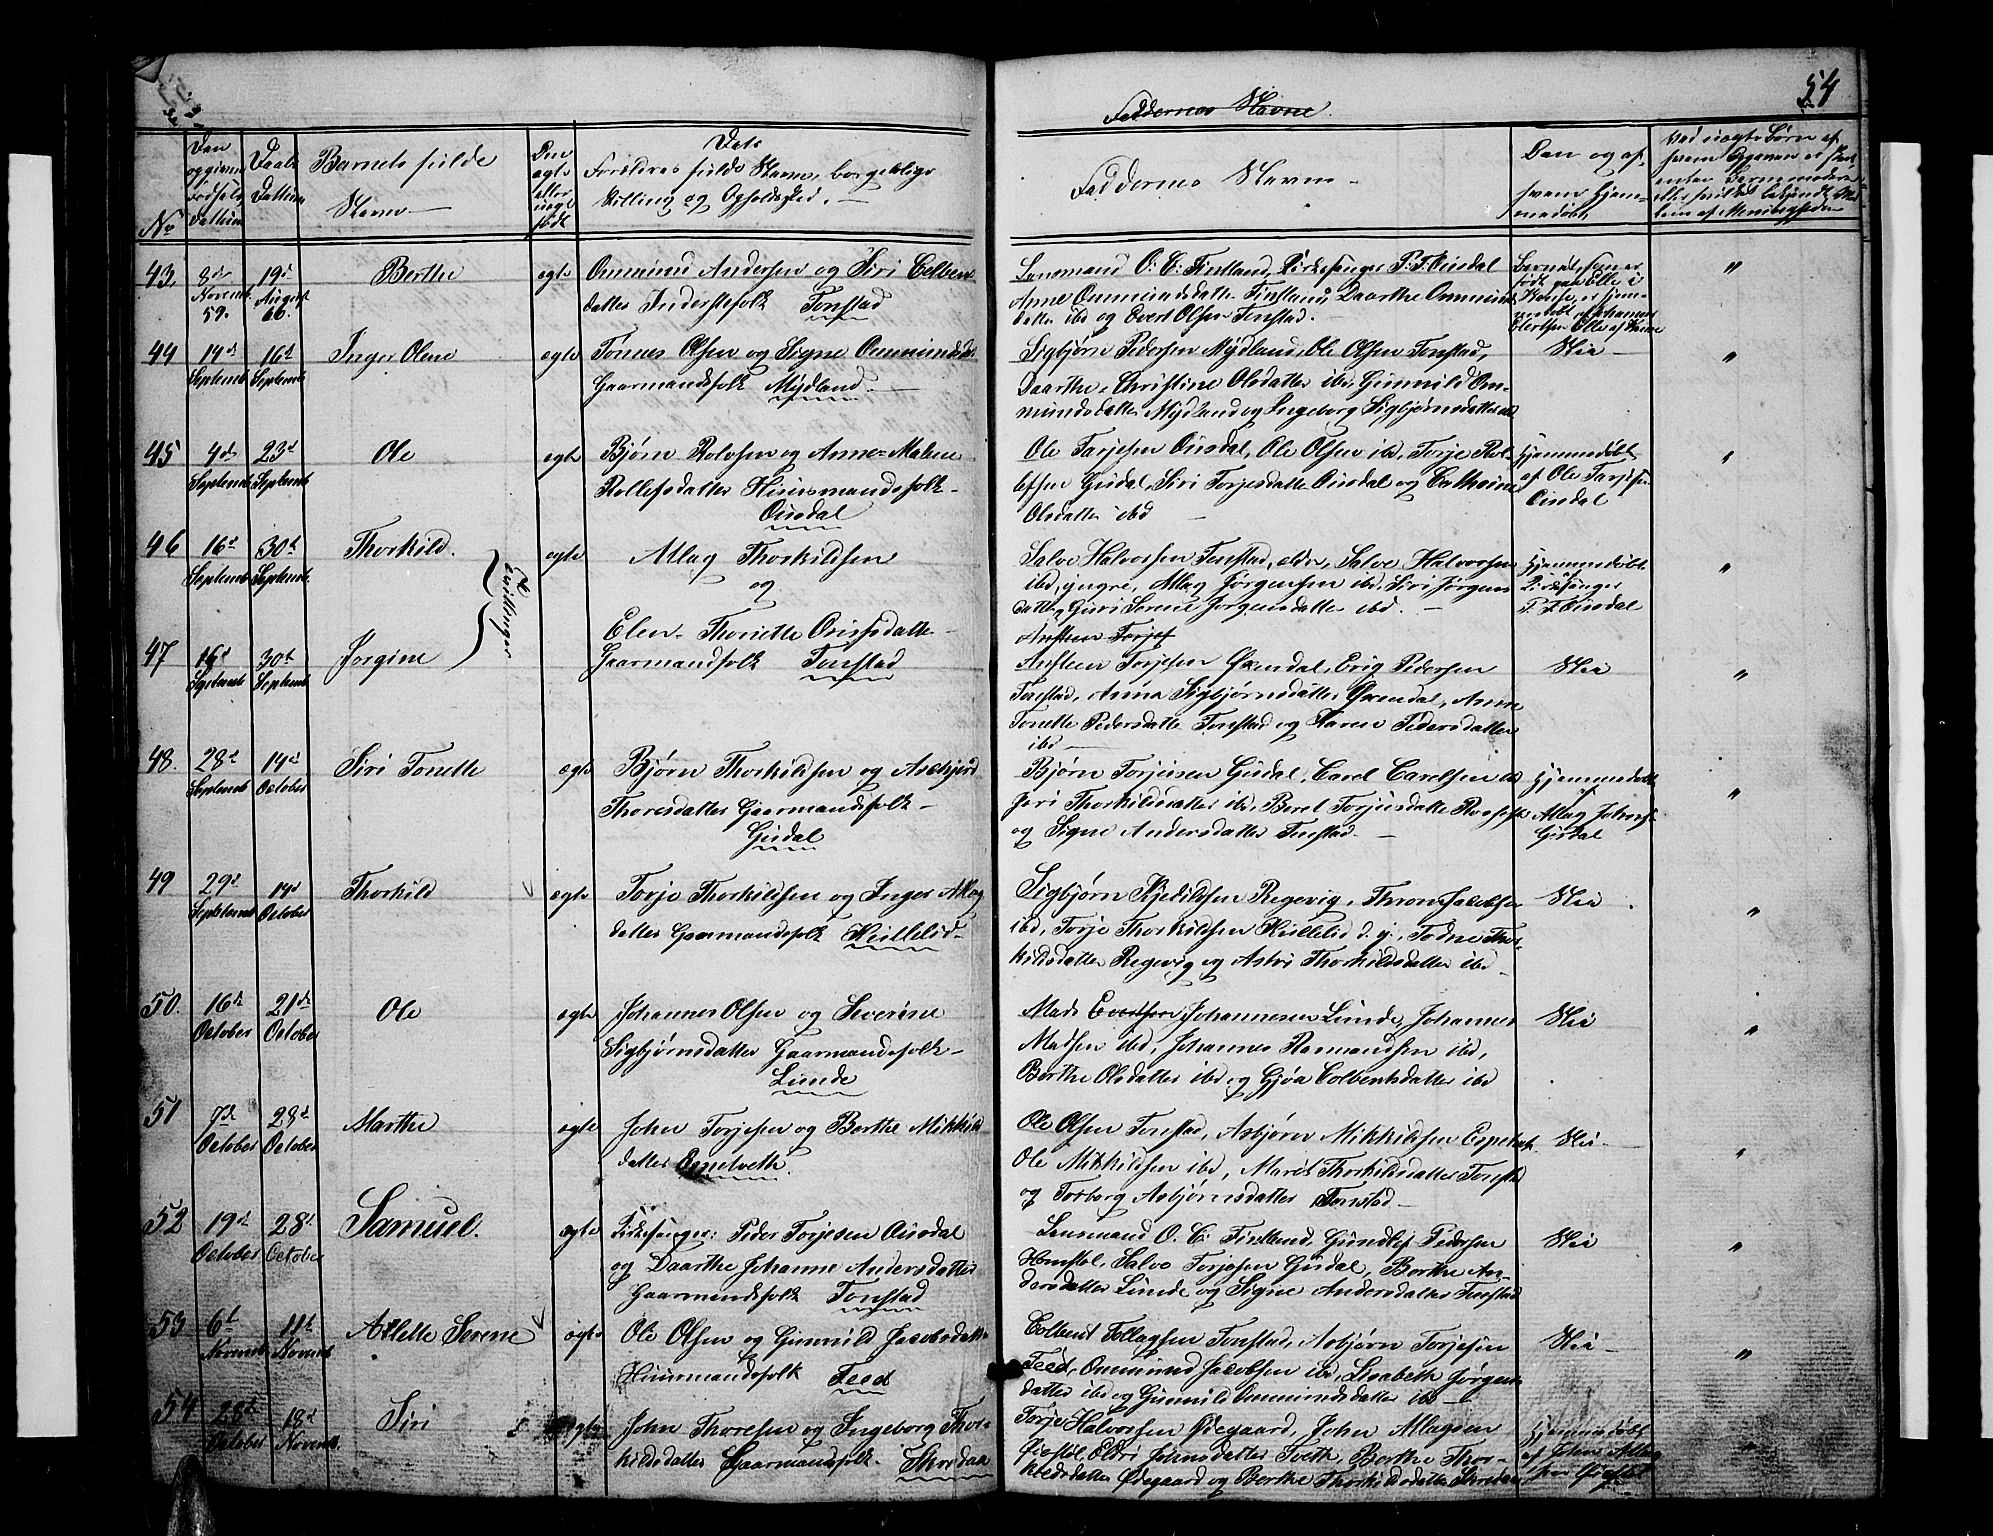 54
Faddernes Navne.
No
Den opgivne Fødsels Dattum
Daabs Dattum
Barnets fulde Navn
Om ægte eller uægte født
Dets Forældres fulde Navne, borgerlige Stilling og Opholdsted.
Faddernes Navne
Om og af hvem hjemmedøbt
43. 8de Novemb. 59. 19d August 60. Berthe ægte
Ommund Andersen og Siri Colben-
datter Inderstefolk Tonstad
Lensmand O. C. Fintland, Kirkesanger P. T. Ousdal
Anne Ommundsdatter Fintland Daarthe Ommunds
datter ibd og Evert Olsen Tonstad.
"
44 14d Septemb 16d Septemb Inger Olene ægte
Tønnes Olsen og Signe Ommundsdtr
Gaarmandsfolk Mydland.
Sigbjørn Pedersen Mydland, Ole Olsen Tonstad,
Daarthe Christine Olsdatter ibd, Gunnild Om-
mundsdatter Mydland og Ingeborg Sigbjørnsdatter ibd
Nei
"
45 4de Septemb 23d Septemb Ole ægte
Bjørn Rolvsen og Anne Malene
Rollefsdatter Huusmandsfolk
Ousdal
Ole Tarjesen Ousdal, Ole Olsen ibd, Torje Rol-
lefsen Gusdal, Siri Torjesdatter Ousdal og Cathrine
Olsdatter ibd
hjemmedøbt
af Ole Tarjesen
Ousdal
"
46 16d Septemb 30te Septemb Thorkild. ægte
Tvillinger
Atlag Thorkildsen
og
Elen Thonette Omisdatter
Gaarmandsfolk Tonstad
Salve Halvorsen Tonstad, eldre, Salve Halvorsen
ibd, yngre, Atlag Jørgensen ibd, Siri Jørgens
datter, Guri Serene Jørgensdatter ibd.
Ansteen Torjes
hjemmedøbt
Kirkesanger
P. T. Ousdal
"
47 16d Septemb 30te Septemb Jorgine
Ansteen Torjesen Øxendal, Erig Pedersen
Tonstad, Anna Sigbjørnsdatter Øxendal, Anne
Tonette Pedersdatter Tonstad og Karen Pedersdatter
ibd
Nei
"
48. 28d Septemb 14d October Siri Tonette ægte
Bjørn Thorkildsen og Aschjerd
Thoresdatter Gaarmandsfolk
Gusdal
Bjørn Torjusen Gusdal, Carel Carelsen ibd
Jori Thorkildsdatter ibd, Berel Torjusdatter
og Signe Andersdatter Tonstad.
hjemmedøbt
Atlag Johns
Gusdal
"
49 29d Septemb 14d October Thorkild ægte
Torje Thorkildsen og Inger Atlag
datter Gaarmandsfolk Kvillelid
Sigbjørn Kjedilsen Regevig, Thron Jacobsen
ibd, Torje Thorkildsen Kvillelid d. y., Todne Thor-
kildsdatter Regevig og Astri Thorkildsdatter ibd
Nei
"
50. 16de October 21de October Ole ægte
Johannes Olsen og Severine
Sigbjørnsdatter Gaarmandsfolk
Lunde
Mads Evertsen Johannesen Lunde, Johannes
Madsen ibd, Johannes Ranmundsen ibd,
Berthe Olsdatter ibd og Gjøa Colbentsdatter ibd
Nei
"
51 7de October 28d October Marthe ægte
John Torjesen og Berthe Mikkild
datter Espetveth.
Ole Olsen Tonstad, Asbjørn Mikkildsen Espetvet.
Ole Mikkildsen ibd, Marit Thorkildsdatter Tonstad
og Torborg Asbjørnsdatter Tonstad
Nei
"
52 19d October 28d October Samuel. ægte
Kirkesanger: Peder Torjesen Ousdal
og Daarthe Johanne Andersdatter
Gaarmandsfolk Tonstad
Lensmand O. C. Fintland, Gundlef Pedersen
Homstøl, Salve Torjesen Gusdal, Berthe An-
dersdatter Lunde og Signe Andersdatter Tonstad
Nei
"
53 6d Novemb 11te Novemb Atlette Serene ægte
Ole Olsen og Gunnild Jacobsdatter
Huusmandsfolk Feed
Colbent Tollagsen Tonstad, Asbjørn Torjesen
Feed, Ommund Jacobsen ibd, Lisabeth Jørgens
datter ibd og Gunnild Ommundsdatter ibd
Nei
"
54 28d October 18d Novemb. Siri ægte
John Thoresen og Ingeborg Thor-
kildsdatter Gaarmandsfolk. Skredaa
Torje Halvorsen Ødegaard, John Atlagsen
Øiestøl, Eldri Johnsdatter Tveth, Berthe Thor-
kildsdatter Ødegaard og Berthe Thorkildsdatter Skredaa
hjemmedøbt
af John Atlag
sen Øiestøl
"